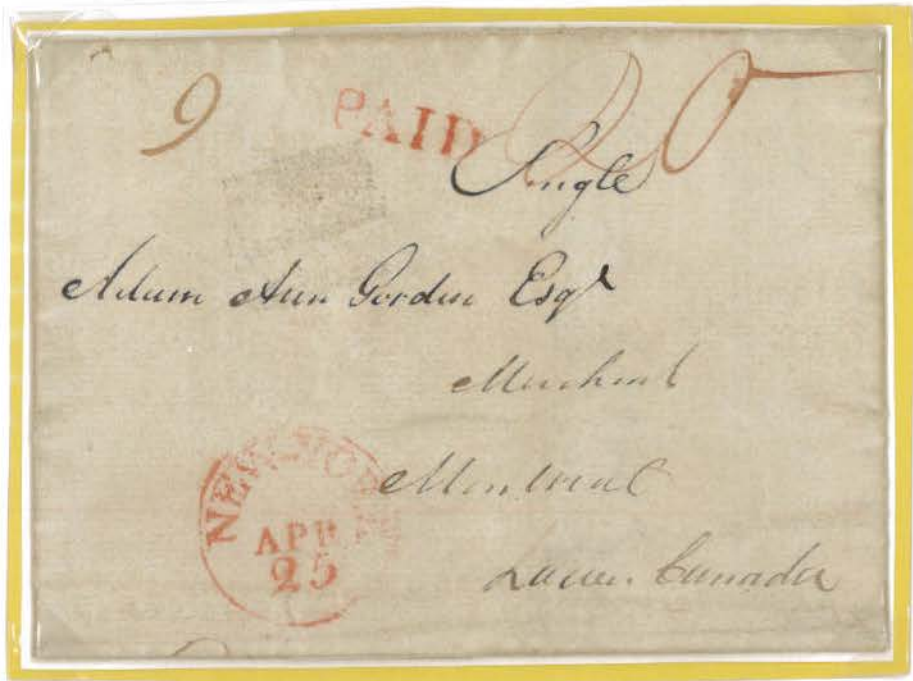 9 PAID 20
Single
Adam Ann Gordon Esqr
Merchant
Montreal
Lower Canada
NEW-YORK
APR
25